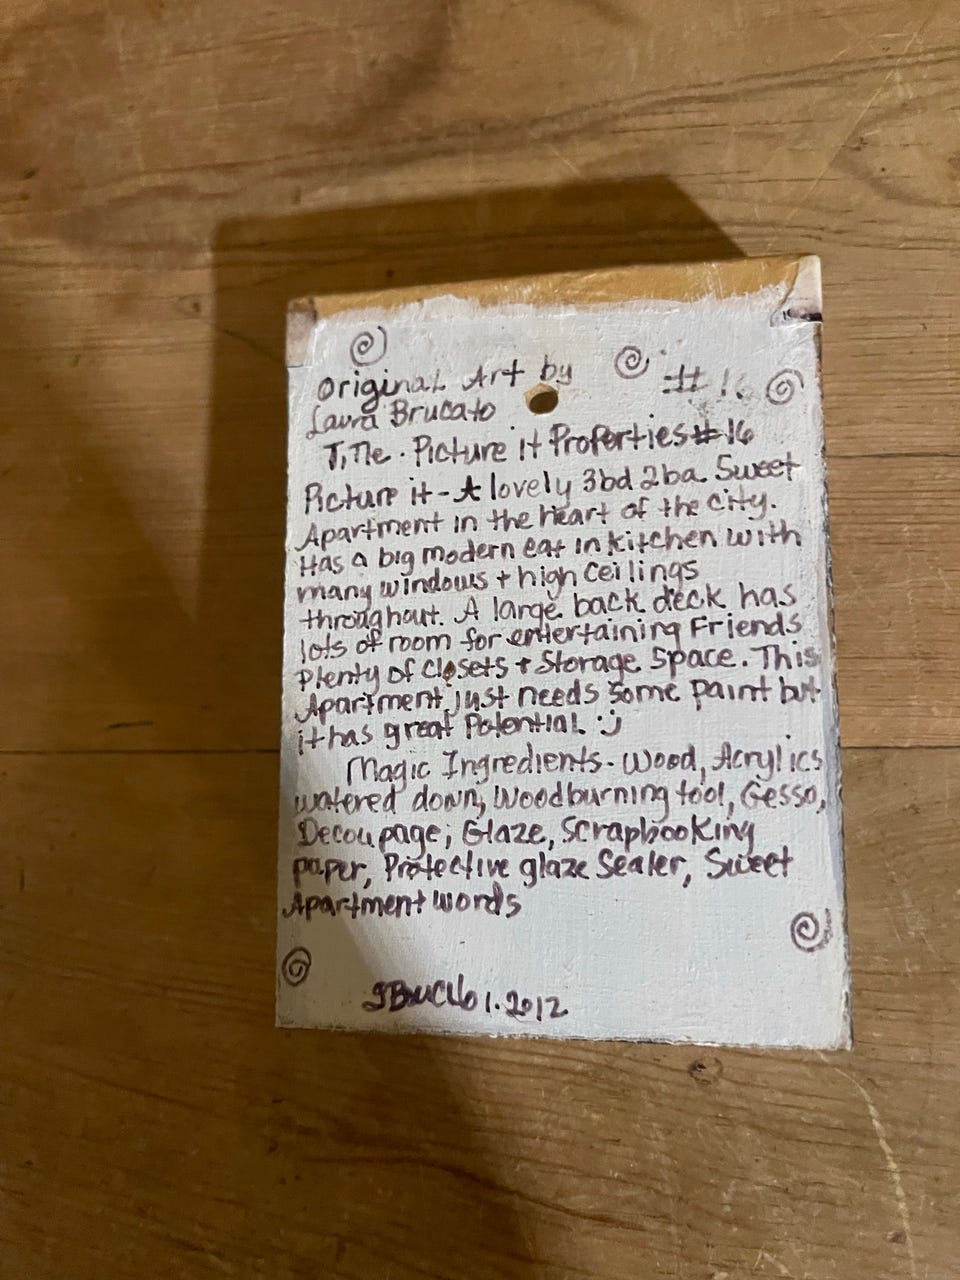 Original Art by #16
Laura Brucato
Title. Picture it Properties #16
Picture it - A lovely 3bd 2ba. Sweet
Apartment in the heart of the city.
Has a big modern eat in kitchen with
many windows + high ceilings
throughout. A large back deck has
lots of room for entertaining Friends
Plenty of closets + Storage Space. This
Apartment just needs some paint but
it has great Potential. :)
Magic Ingredients - Wood, Acrylics
watered down, Woodburning tool, Gesso,
Decoupage, Glaze, Scrapbooking
paper, Protective glaze Sealer, Sweet
Apartment words
1.2012